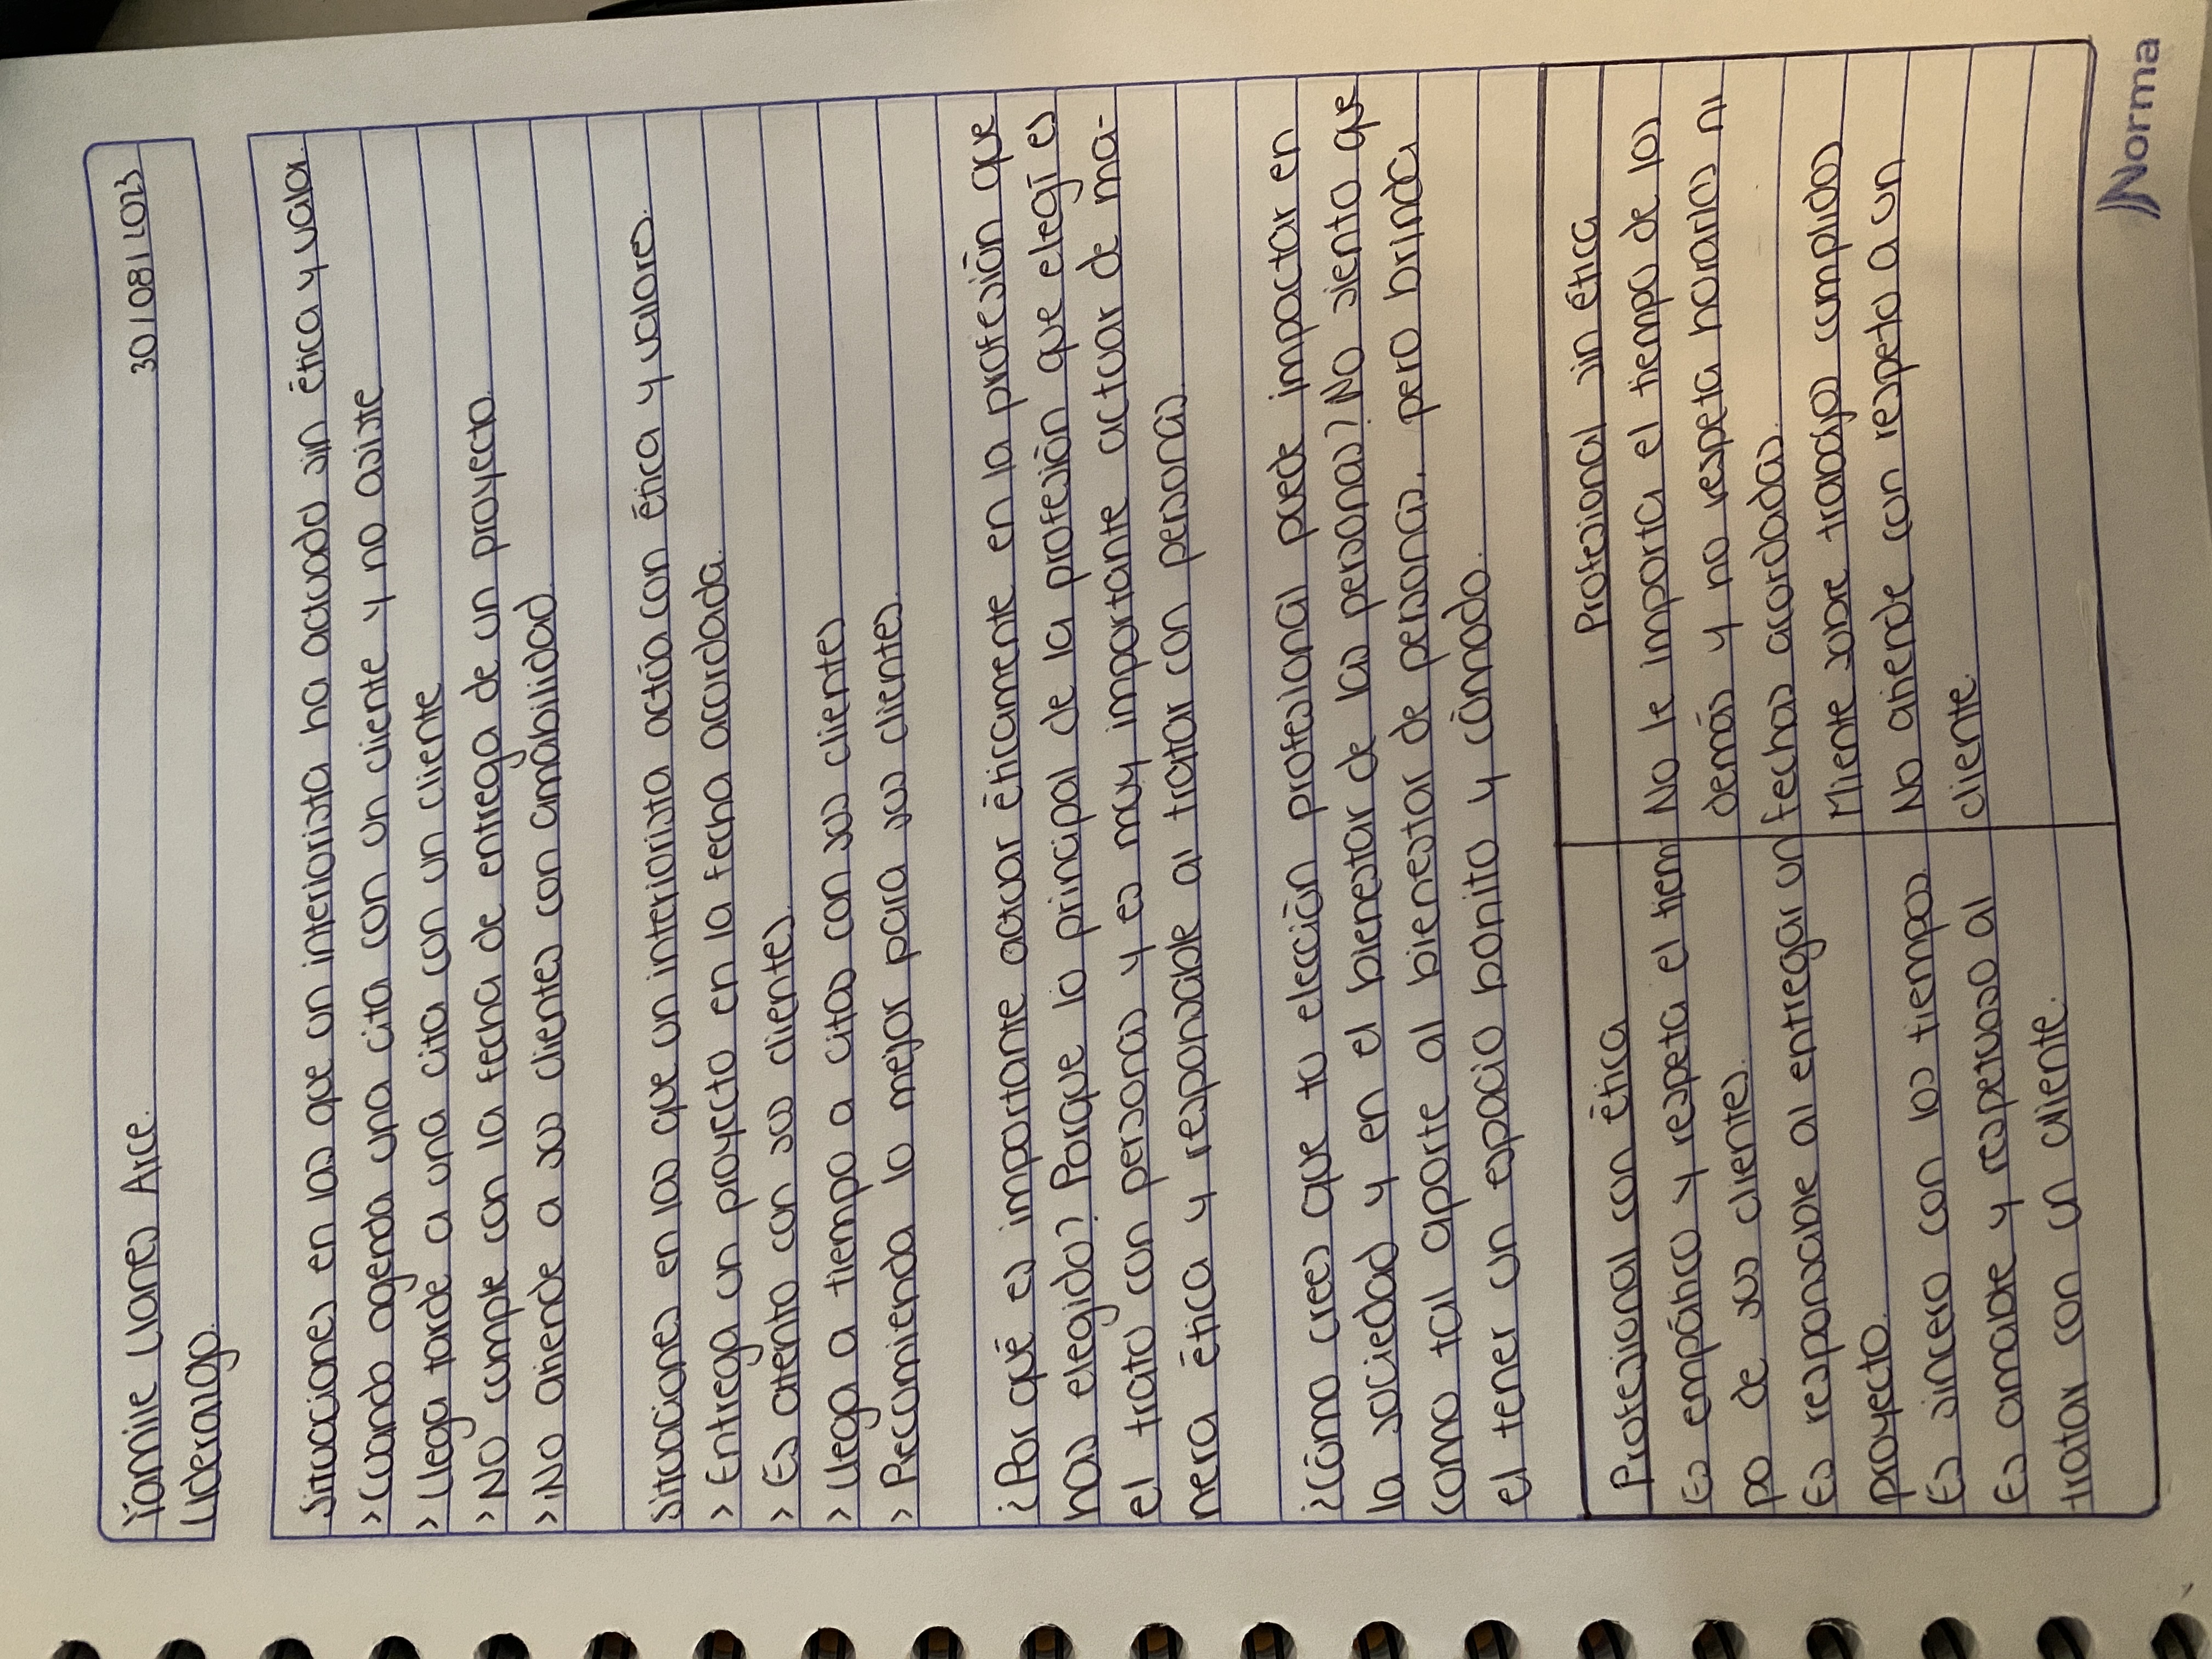 Yamile Llanes Arce.
30/08/2023
Liderazgo.
Situaciones en las que un interiorista ha actuado sin ética y valor.
> Cuando agenda una cita con un cliente y no asiste
> Llega tarde a una cita con un cliente
> No cumple con la fecha de entrega de un proyecto.
> No atiende a sus clientes con amabilidad.
Situaciones en las que un interiorista actúa con ética y valores.
> Entrega un proyecto en la fecha acordada.
> Es atento con sus clientes.
> Llega a tiempo a citas con sus clientes
> Recomienda lo mejor para sus clientes.
¿Por qué es importante actuar éticamente en la profesión que
has elegido? Porque lo principal de la profesión que elegí es
el trato con personas y es muy importante actuar de ma-
nera ética y responsable al tratar con personas.
¿Cómo crees que tu elección profesional puede impactar en
la sociedad y en el bienestar de las personas? No siento que
como tal aporte al bienestar de personas, pero brinda
el tener un espacio bonito y cómodo.
Profesional con ética
Es empático y respeta el tiem
po de sus clientes.
Es responsable al entregar un
proyecto.
Es sincero con los tiempos
Es amable y respetuoso al
tratar con un cliente.
Profesional sin ética
No le importa el tiempo de los
demás y no respeta horarios ni
fechas acordadas.
Miente sobre trabajos cumplidos
No atiende con respeto a un
cliente.
Norma